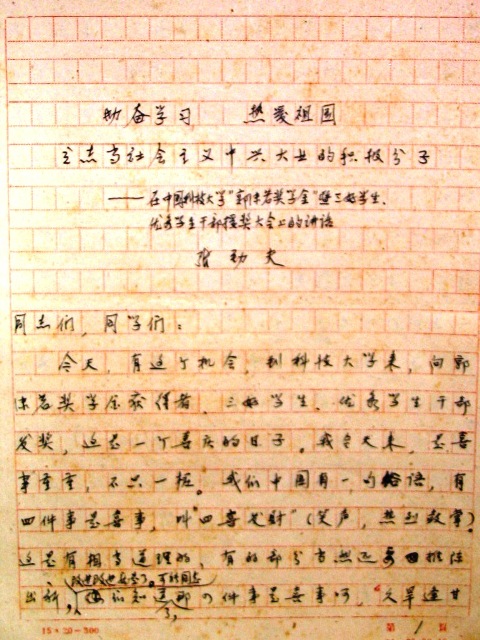 勤奋学习 热爱祖国
立志当社会主义中兴大业的积极分子
——在中国科技大学"郭沫若奖学金"暨三好学生、
优秀学生干部授奖大会上的讲话
张劲夫
同志们,同学们:
今天,有这个机会,到科技大学来,向郭
沫若奖学金获得者、三好学生、优秀学生干部
发奖,这是一个喜庆的日子。我今天来,是喜
事重重,不只一桩。我们中国有一句俗语,有
四件事是喜事,叫"四喜发财"(笑声,热烈鼓掌)。
这是有相当道理的,有的部分当然还要
出新,知道那四件事是喜事呵,"久旱逢甘
15×20=300
第 1 页